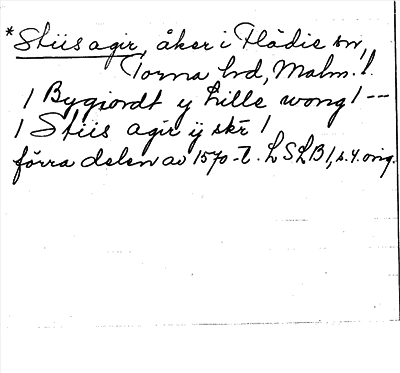 *Stiis agir, åker i Flädie sn,
Torna hd, Malm. l.
/ Bygiordt y Lille wong / --
/ Stiis agir ÿ skr /
förra delen av 1570-t. LSLB 1, s. 4. orig.